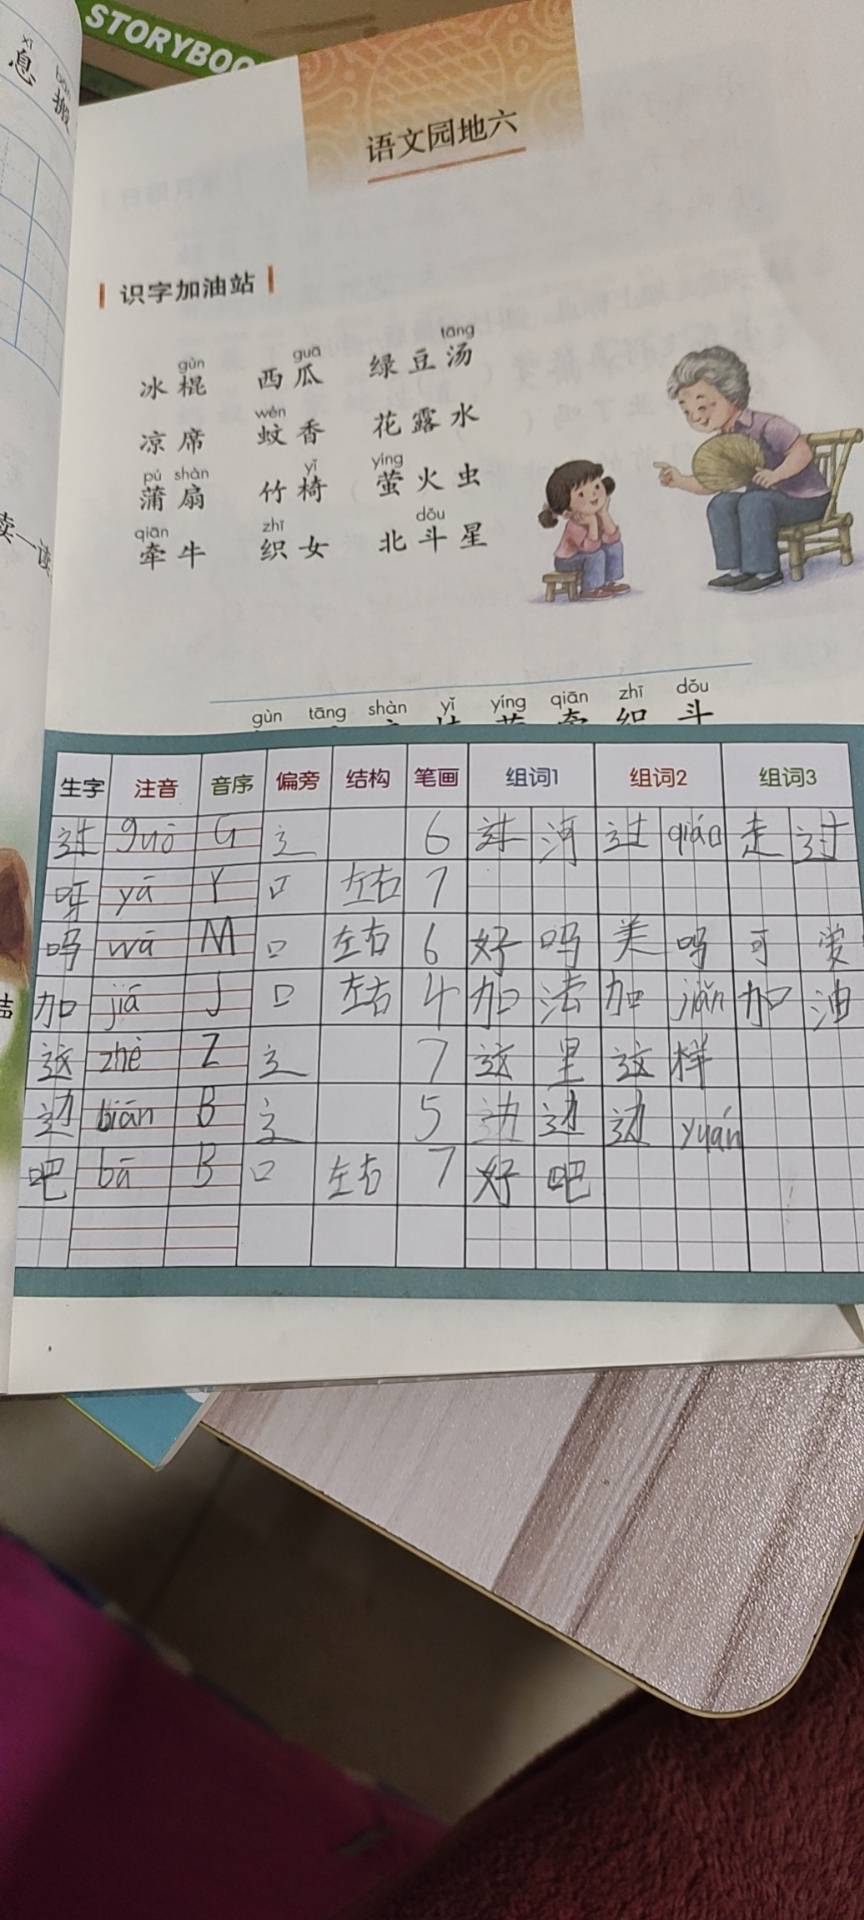 STORYBOO
xī
息 搬
语文园地六
识字加油站
gùn guā tāng
冰棍 西瓜 绿豆汤
wén
凉席 蚊香 花露水
pú shàn yǐ yíng
蒲扇 竹椅 萤火虫
qiān zhī dǒu
牵牛 织女 北斗星
读一读
gùn tāng shàn yǐ yíng qiān zhī dǒu
生字 注音 音序 偏旁 结构 笔画 组词1 组词2 组词3
过 guō G 辶 6 过河 过qiáo 走过
呀 yā Y 口 左右 7
吗 mā M 口 左右 6 好吗 美吗 可爱
加 jiā J 口 左右 4 加法 加jiǎn 加油
这 zhè Z 辶 7 这里 这样
边 biān B 辶 5 边边 边yuán
吧 bā B 口 左右 7 好吧